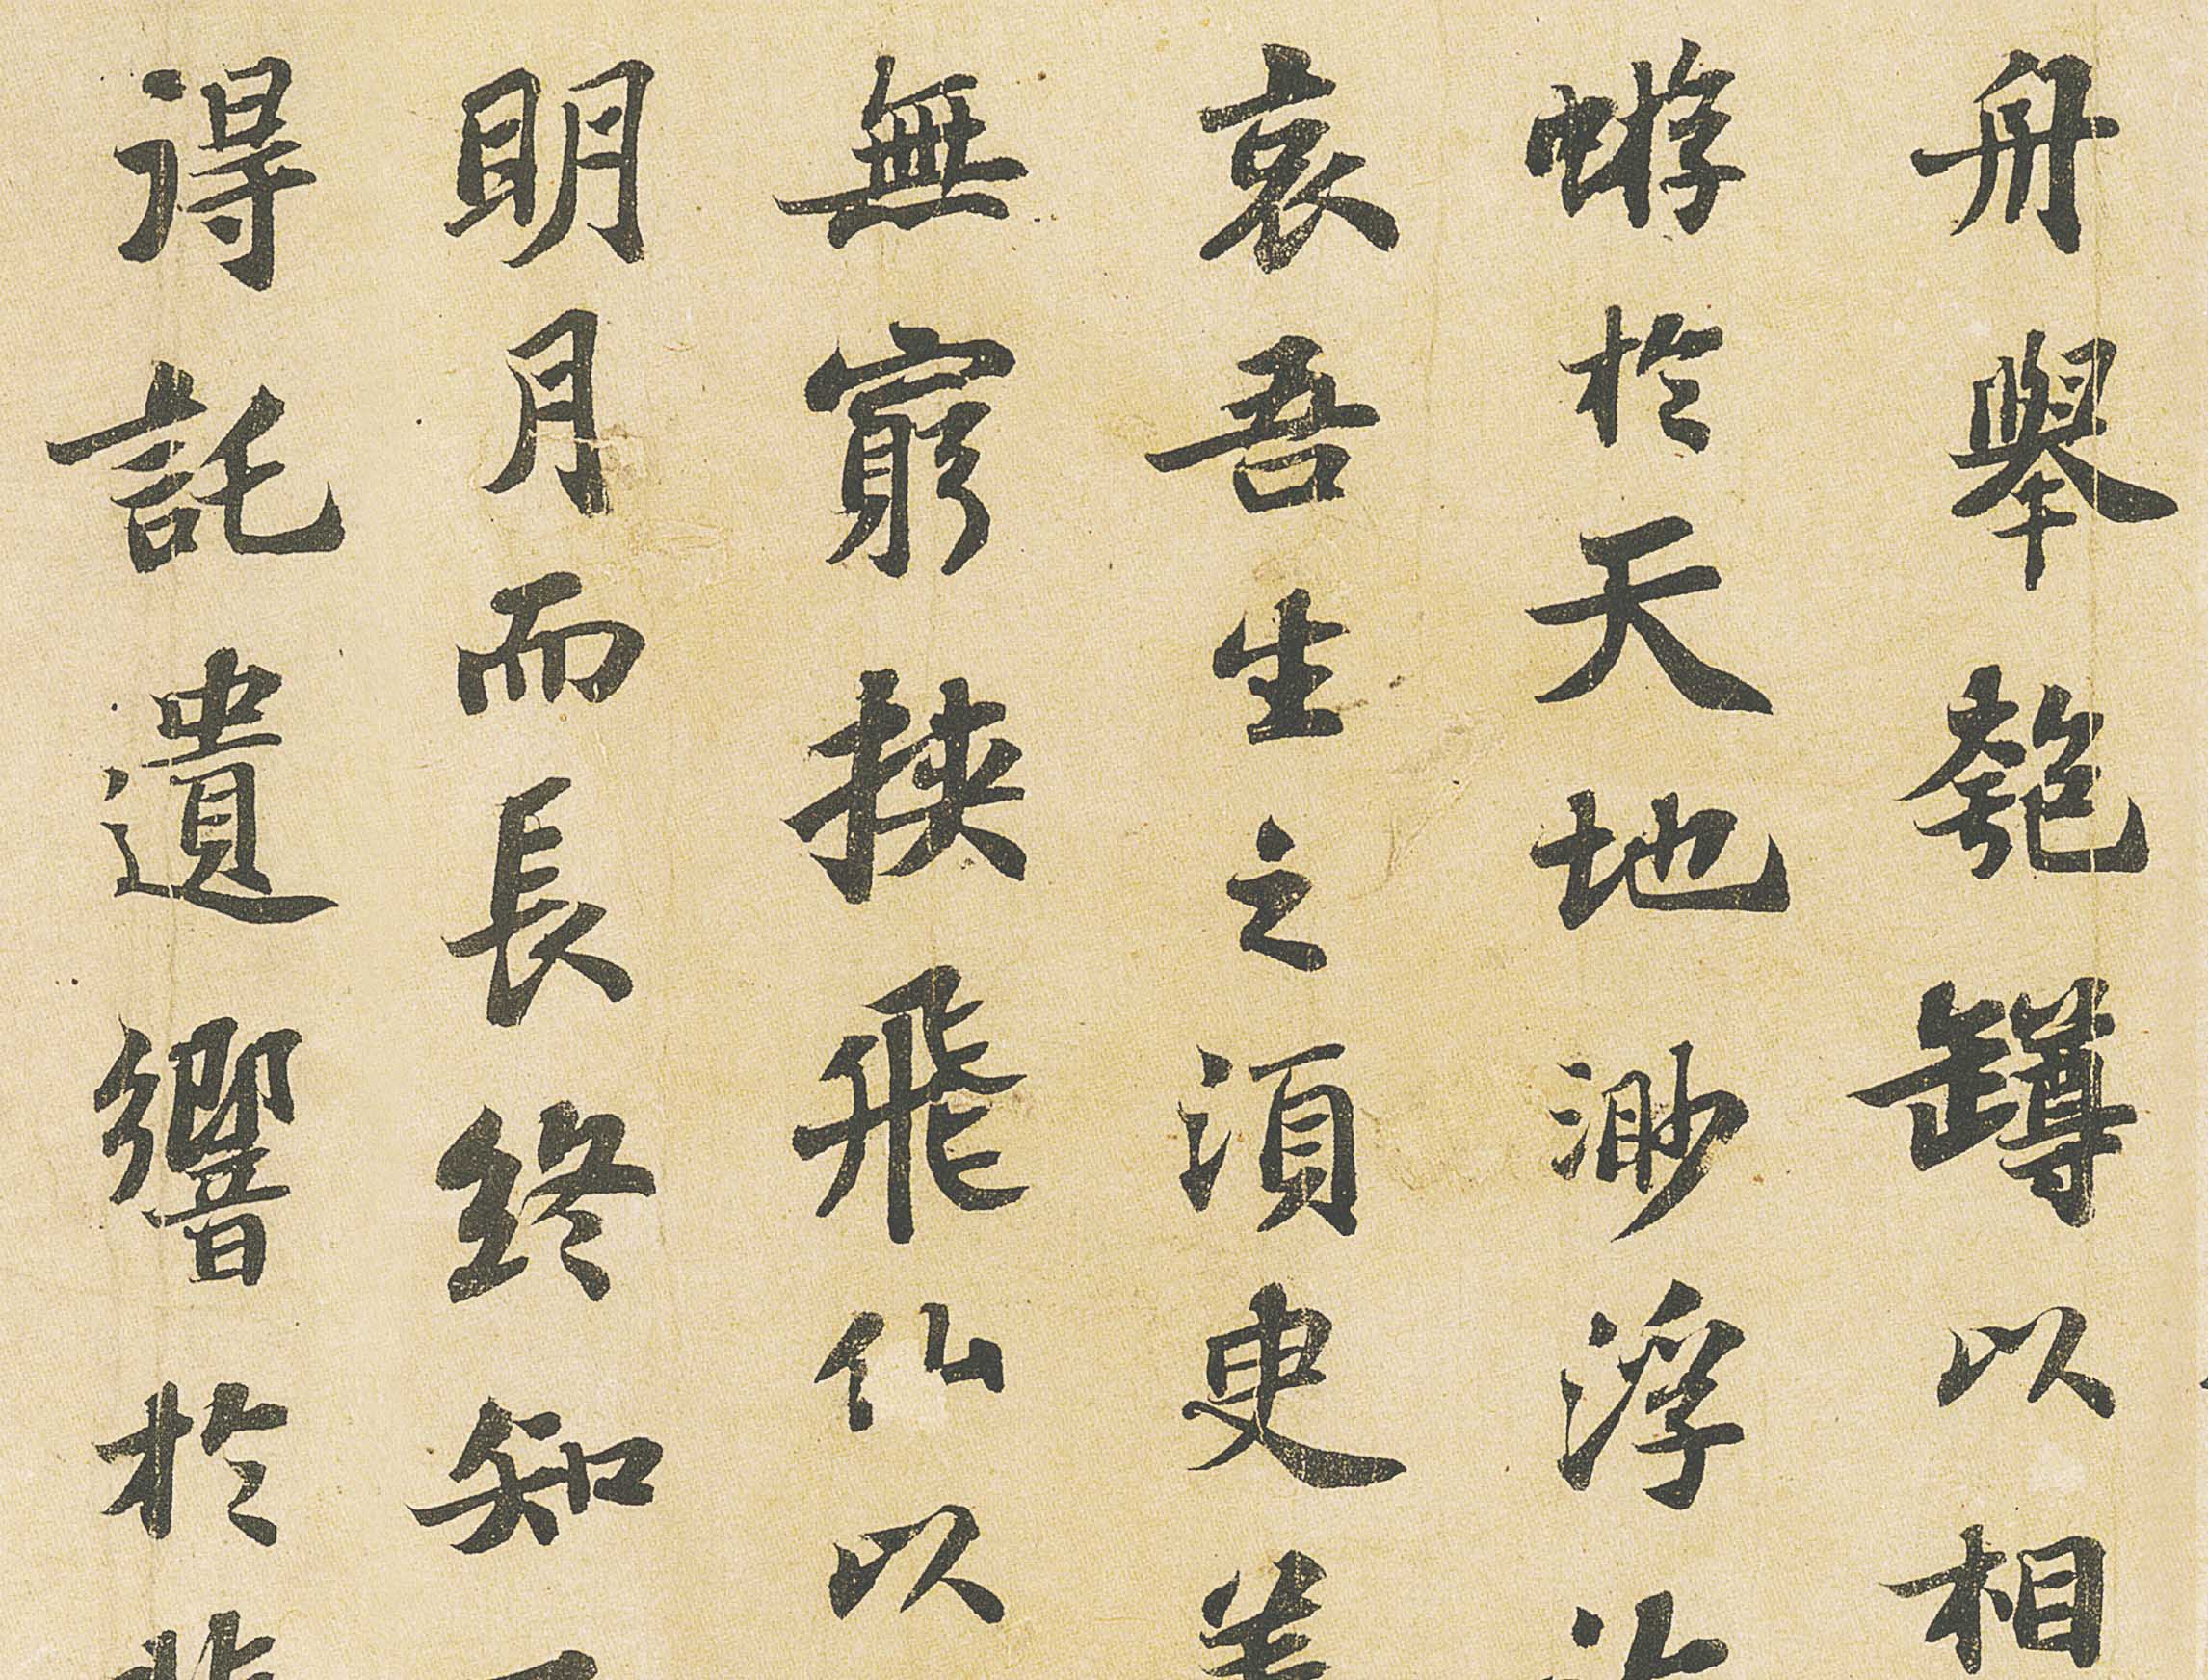 舟舉匏罇以相
蝣於天地渺浮
哀吾生之須臾羨
無窮挾飛仙以
明月而長終知
得託遺響於悲